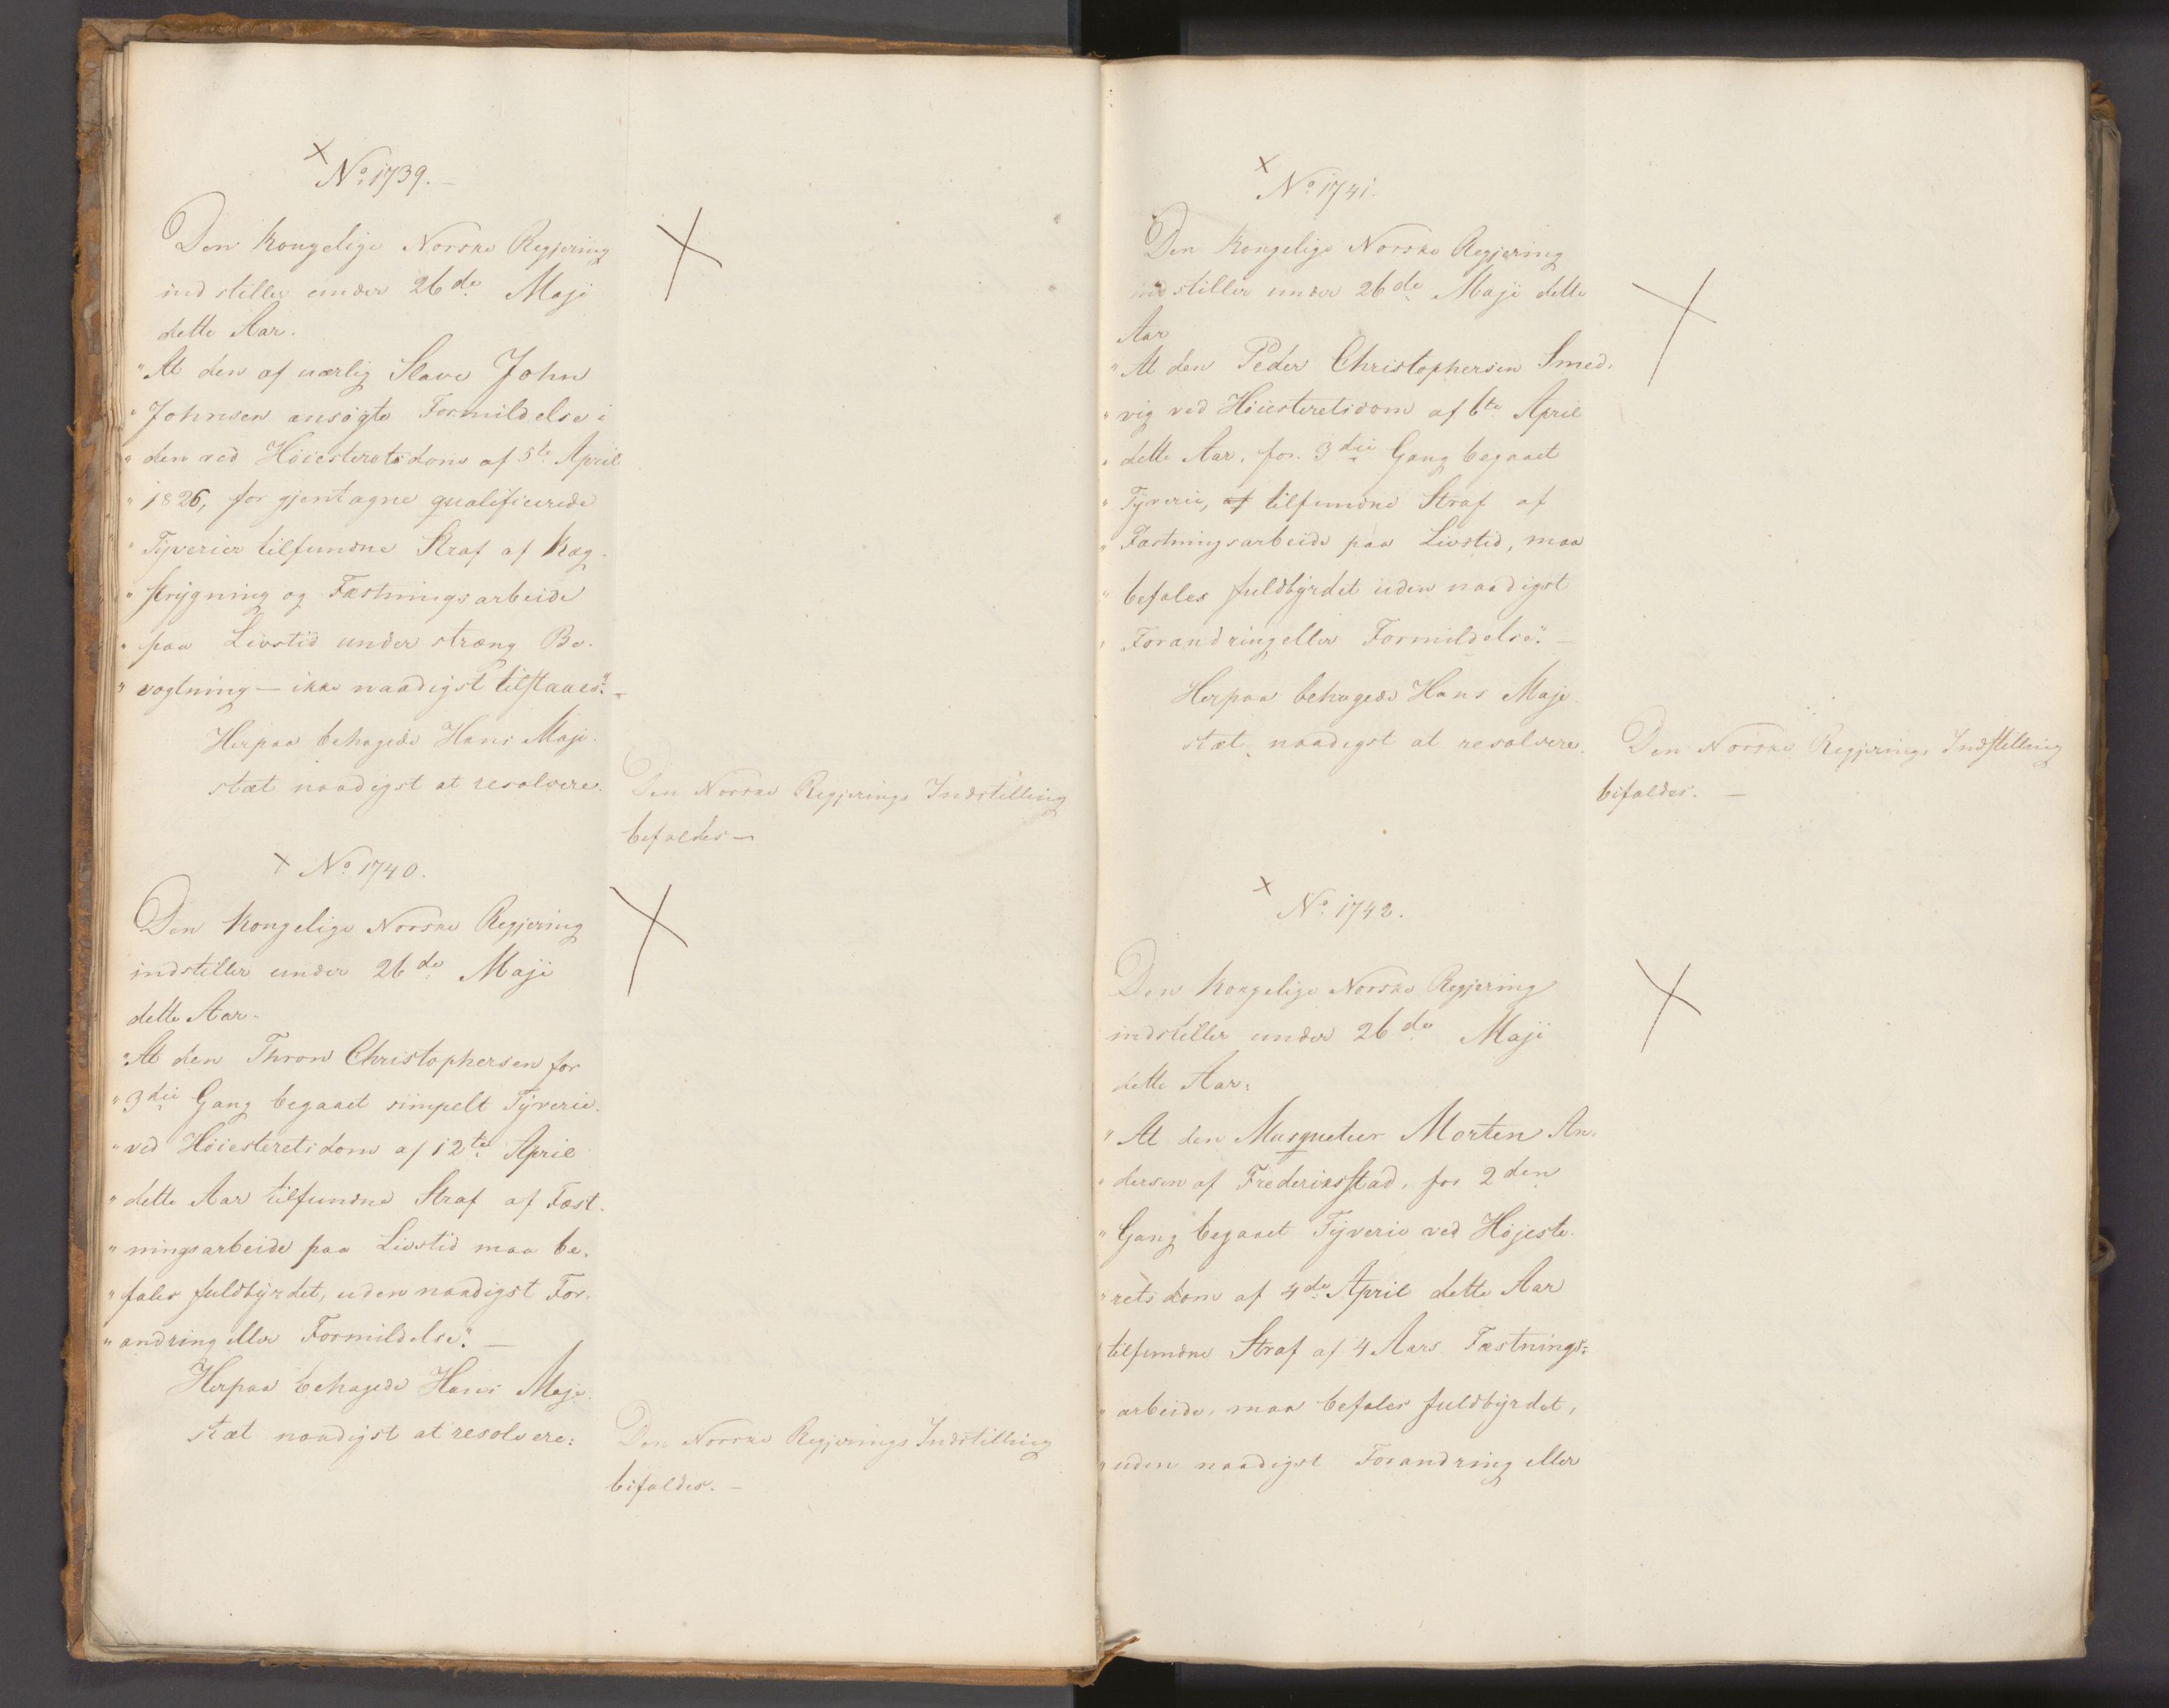 No 1739.
Den Kongelige Norske Regjering
indstiller under 26de Maji
dette Aar.
"At den af uærlig Slave John
"Johnsen ansøgte Formildelse i
"den ved Høiesteretsdom af 5te April
"1826, for gjentagne qualificerede
"Tyverier tilfundne Straf af Kag-
"strygning og Fæstningsarbeide
"paa Livstid under stræng Be-
"vogtning – ikke naadigst tilstaaes". –
Herpaa behagede Hans Maje-
stæt naadigst at resolvere.
Den Norske Regjerings Indstilling
bifaldes –
No 1740.
Den Kongelige Norske Regjering
indstiller under 26de Maji
dette Aar.
"At den Thron Christophersen for
"3die Gang begaaet simpelt Tyverie
"ved Høiesteretsdom af 12te April
"dette Aar tilfundne Straf af Fæst-
"ningsarbeide paa Livstid maa be-
"fales fuldbyrdet, uden naadigst For-
"andring eller Formildelse". –
Herpaa behagede Hans Maje-
stæt naadigst at resolvere:
Den Norske Regjerings Indstilling
bifaldes. –
No 1741.
Den Kongelige Norske Regjering
indstiller under 26de Maji dette
Aar
"At den Peder Christophersen Smed-
"vig ved Høiesteretsdom af 6te April
"dette Aar, for 3die Gang begaaet
"Tyverie, af tilfundne Straf af
"Fæstningsarbeide paa Livstid, maa
"befales fuldbyrdet uden naadigst
"Forandring eller Formildelse". –
Herpaa behagede Hans Maje-
stæt naadigst at resolvere.
Den Norske Regjerings Indstilling
bifaldes. –
No 1742.
Den Kongelige Norske Regjering
indstiller under 26de Maji
dette Aar:
"At den Musqueteer Morten An-
"dersen af Frederiksstad, for 2den
"Gang begaaet Tyverie ved Højeste-
"retsdom af 4de April dette Aar
"tilfundne Straf af 4 Aars Fæstnings-
"arbeide, maa befales fuldbyrdet,
"uden naadigst Forandring eller